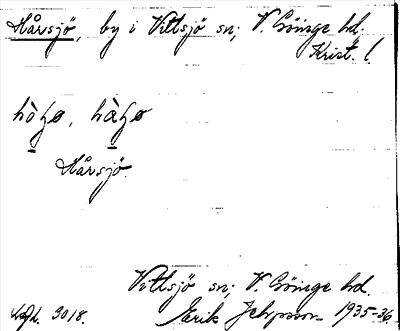 Hårsjö, by i Vittsjö sn; V. Göinge hd.
Krist. l.
Hårsjö.
Vittsjö sn; V. Göinge hd.
Erik Jeppsson 1935-36.
3018.